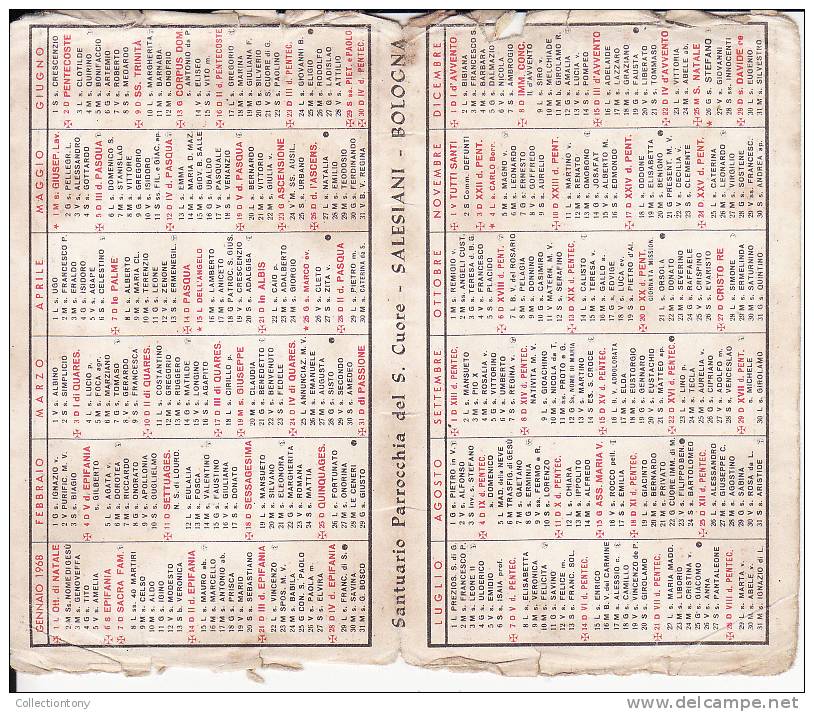 GENNAIO 1968
1 L Ott. di NATALE
2 M Ss. NOME DI GESÙ
3 M s. GENOVEFFA
4 G s. TITO
5 V s. AMELIA
6 S EPIFANIA
7 D SACRA FAM.
8 L ss. 40 MARTIRI
9 M s. CELSO
10 M s. ALDO
11 G s. IGINO
12 V s. MODESTO
13 S b. VERONICA
14 D II d. EPIFANIA
15 L s. MAURO ab.
16 M s. MARCELLO
17 M s. ANTONIO ab.
18 G s. PRISCA
19 V s. MARIO
20 S s. SEBASTIANO
21 D III d. EPIFANIA
22 L s. VINCENZO
23 M SPOS. M. V.
24 M s. BABILA
25 G CON. S. PAOLO
26 V s. PAOLA
27 S s. ELVIRA
28 D IV d. EPIFANIA
29 L s. FRANC. di S.
30 M s. SAVINA
31 M s. G. BOSCO
FEBBRAIO
1 G s. IGNAZIO v.
2 V PURIFIC. M. V.
3 S s. BIAGIO
4 D V d. EPIFANIA
5 L s. AGATA v.
6 M s. DOROTEA
7 M s. RICCARDO
8 G s. ONORATO
9 V s. APOLLONIA
10 S s. GUGLIELMO
11 D SETTUAGES.
N. S. di LOURD.
13 M s. FOSCA
14 M s. VALENTINO
15 G s. FAUSTINO
16 V s. GIULIANA
17 S s. DONATO
18 D SESSAGESIMA
19 L s. MANSUETO
20 M s. SILVANO
21 M s. ELEONORA
22 G s. MARGHERITA
23 V s. ROMANA
24 S s. MODESTO
25 D QUINQUAGES.
26 L s. FORTUNATO
27 M s. ONORINA
28 M LE CENERI
29 G s. GIUSTO
MARZO
1 V s. ALBINO
2 S s. SIMPLICIO
3 D I di QUARES.
4 L s. LUCIO p.
5 M s. FOCA
6 M s. MARZIANO
7 G s. TOMMASO
8 V s. GERARDO
9 S s. FRANCESCA
10 D II di QUARES.
11 L s. COSTANTINO
12 M s. GREGORIO
13 M s. RUGGERO
14 G s. MATILDE
15 V s. LONGINO
16 S s. AGAPITO
17 D III di QUARES.
18 L s. CIRILLO p.
19 M s. GIUSEPPE
20 M s. CLAUDIA
21 G s. BENEDETTO
22 V s. BENVENUTO
24 D IV di QUARES.
25 L ANNUNCIAZ. M. V.
26 M s. EMANUELE
27 M s. AUGUSTA
28 G s. SISTO
29 V s. SECONDO
30 S s. AMEDEO
31 D di PASSIONE
APRILE
1 L s. UGO
2 M s. FRANCESCO P.
3 M s. RICCARDO
4 G s. ISIDORO
5 V s. AGAPE
6 S s. CELESTINO
7 D le PALME
8 L s. ALBERTO
10 M s. TERENZIO
11 G s. LEONE
12 V s. ZENONE
13 S s. ERMENEGIL.
14 D PASQUA
15 L DELL'ANGELO
16 M s. LAMBERTO
17 M s. ANICETO
18 G PATROC. S. GIUS.
19 V s. CRESCENZIO
20 S s. ADALGISA
21 D in ALBIS
22 L s. CAIO p.
23 M s. ADALBERTO
24 M s. GIORGIO
25 G s. MARCO ev.
26 V s. CLETO
27 S s. ZITA v.
28 D II d. PASQUA
29 L s. PIETRO m.
30 M s. CATERINA da S.
MAGGIO
1 M s. GIUSEP. Lav.
2 G s. PELLEGR. L.
3 V s. ALESSANDRO
4 S s. GOTTARDO
5 D III d. PASQUA
6 L s. DOMENICO S.
7 M s. STANISLAO
8 M s. VITTORE
9 G s. GREGORIO
10 V s. ISIDORO
11 S ss. FIL. e GIAC. ap.
12 D IV d. PASQUA
13 L s. EMMA
14 M s. MARIA D. MAZ.
15 M s. GIOV. B. SALLE
16 G s. UBALDO
17 V s. PASQUALE
18 S s. VENANZIO
19 D V d. PASQUA
20 L s. BERNARDO
21 M s. VITTORIO
22 M s. GIULIA v.
23 G ASCENSIONE
24 V M. SS. AUSIL.
25 S s. URBANO
26 D d. l'ASCENS.
27 L s. NATALIA
28 M s. EMILIO
29 M s. TEODOSIO
30 G s. FERDINANDO
31 V B. M. V. REGINA
GIUGNO
1 S s. CRESCENZIO
2 D PENTECOSTE
3 L s. CLOTILDE
4 M s. QUIRINO
5 M s. BONIFACIO
6 G s. ARTEMIO
7 V s. ROBERTO
8 S s. MEDARDO
9 D SS. TRINITÀ
10 L s. MARGHERITA
11 M s. BARNABA
12 M s. ONOFRIO
13 G CORPUS DOM.
s. ANTONIO da P.
14 V s. ELISEO
15 S s. VITO m.
16 D II d. PENTEC.
17 L s. GREGORIO
18 M s. MARINA
19 M s. GIULIANA F.
20 G s. SILVERIO
21 V S. CUORE di G.
22 S s. PAOLINO
23 D III d. PENTEC.
24 L s. GIOVANNI B.
25 M s. GUGLIELMO
26 M s. RODOLFO
27 G s. LADISLAO
28 V s. ATTILIO
29 S ss. PIET. e PAOLO
30 D IV d. PENTEC.
Santuario Parrocchia del S. Cuore - SALESIANI - BOLOGNA
LUGLIO
1 L PREZIOS. S. di G.
2 M s. FRANCESCO P.
3 M s. LEONE
4 G s. ULDERICO
5 V s. EMIDIO
6 S s. ISAIA prof.
7 D V d. PENTEC.
8 L s. ELISABETTA
9 M s. VERONICA
10 M s. FELICITA
11 G s. SAVINO
12 V s. FELICE m.
13 S s. FRANC. SOL.
14 D VI d. PENTEC.
15 L s. ENRICO
16 M B. V. del CARMINE
17 M s. ALESSIO
18 G s. CAMILLO
19 V s. VINCENZO de P.
20 S s. GIROLAMO
21 D VII d. PENTEC.
22 L s. MARIA MADD.
23 M s. APOLLINARE
24 M s. CRISTINA
25 G s. GIACOMO
26 V s. ANNA
27 S s. PANTALEONE
28 D VIII d. PENTEC.
29 L s. MARTA
30 M s. ABELE
31 M s. IGNAZIO di L.
AGOSTO
1 G s. PIETRO in V.
2 V s. ALFONSO
3 S Inv. s. STEFANO
4 D IX d. PENTEC.
5 L MAD. della NEVE
6 M TRASFIG. di GESÙ
7 M s. GAETANO
8 G s. ERMINIA
9 V ss. FERMO e R.
10 S s. LORENZO
11 D X d. PENTEC.
12 L s. CHIARA
13 M s. IPPOLITO
14 M s. ALFREDO
15 G ASS. MARIA V.
16 V s. ROCCO pell.
17 S s. EMILIA
18 D XI d. PENTEC.
19 L s. GIACINTO
20 M s. BERNARDO
21 M s. PRIVATO
22 G CUORE IMM. di M.
23 V s. FILIPPO BEN.
24 S s. BARTOLOMEO
25 D XII d. PENTEC.
26 L s. ALESSANDRO
27 M s. GIUSEPPE C.
28 M s. AGOSTINO
29 G s. SABINA
30 V s. ROSA da L.
31 S s. ARISTIDE
SETTEMBRE
1 D XIII d. PENTEC.
2 L s. MANSUETO
3 M s. PIO X
4 M s. ROSALIA
5 G s. VITTORINO
6 V s. UMBERTO
7 S s. REGINA v.
8 D XIV d. PENTEC.
NATIVITÀ M. V.
9 L s. GIOACHINO
10 M s. NICOLA da T.
11 M ss. PROTO e G.
12 G ss. NOME DI MARIA
13 V s. MARTINO
14 S ES. S. CROCE
15 D XV d. PENTEC.
B. V. ADDOLORATA
17 M s. ELDA
18 M s. EUSTORGIO
19 G s. GENNARO
20 V s. EUSTACHIO
21 S s. MATTEO ap.
22 D XVI d. PENTEC.
23 L s. LINO p.
24 M s. TECLA
25 M s. AURELIA v.
26 G s. CIPRIANO
27 V s. ADOLFO m.
28 S s. VENCESLAO
29 D XVII d. PENT.
s. MICHELE
30 L s. GIROLAMO
OTTOBRE
1 M s. REMIGIO v.
2 M ss. ANGELI CUST.
3 G s. TERESA d. B. G.
4 V s. FRANCESCO
5 S s. PLACIDO
6 D XVIII d. PENT.
7 L B. V. del ROSARIO
8 M s. PELAGIA
9 M s. DONNINO
10 G s. CASIMIRO
11 V MATERN. M. V.
12 S s. SERAFINO
13 D XIX d. PENTEC.
14 L s. CALISTO
15 M s. TERESA v.
16 M s. GALLO a.
17 G s. EDVIGE
18 V s. LUCA ev.
19 S s. PIETRO d'Al.
20 D XX d. PENTEC.
GIORNATA MISSION.
21 L s. ORSOLA
22 M s. DONATO
23 M s. SEVERINO
24 G s. RAFFAELE
25 V s. CRISPINO
26 S s. EVARISTO
27 D CRISTO RE
29 M s. ERMELINDA
30 M s. SATURNINO
31 G s. QUINTINO
NOVEMBRE
1 V TUTTI SANTI
2 S Comm. DEFUNTI
3 D XXII d. PENT.
4 L s. CARLO Borr.
5 M s. MAGNO v.
6 M s. LEONARDO
7 G s. ERNESTO
8 V s. GOFFREDO
9 S s. AURELIO
10 D XXIII d. PENT.
11 L s. MARTINO v.
12 M s. DIEGO
13 M s. OMOBONO
14 G s. JOSAFAT
15 V s. ALBERTO
16 S s. EDMONDO
17 D XXIV d. PENT.
18 L s. ODDONE
19 M s. ELISABETTA
20 M s. BENIGNO
21 G PRESEN. M. V.
22 V s. CECILIA v.
23 S s. CLEMENTE
24 D XXV d. PENT.
25 L s. CATERINA
26 M s. LEONARDO
27 M s. VIRGILIO
28 G s. SOSTENE
29 V s. SATURNINO
30 S s. ANDREA ap.
DICEMBRE
1 D I d'AVVENTO
2 L s. BIBIANA
3 M s. FRANCESCO
4 M s. BARBARA
5 G s. DALMAZIO
6 V s. NICOLA
7 S s. AMBROGIO
8 D IMM. CONC.
9 L s. SIRO v.
10 M s. MELCHIADE
11 M b. GIROLAMO R.
12 G s. AMALIA
13 V s. LUCIA
14 S s. POMPEO
15 D III d'AVVENTO
16 L s. ADELAIDE
17 M s. LAZZARO
18 M s. GRAZIANO
19 G s. FAUSTA
20 V s. LIBERATO
21 S s. TOMMASO
22 D IV d'AVVENTO
23 L s. VITTORIA
24 M s. ADELE ab.
25 M S. NATALE
26 G s. STEFANO
27 V s. GIOVANNI
28 S ss. INNOCENTI
29 D s. DAVIDE re
30 L s. EUGENIO
31 M s. SILVESTRO
Collectiontony
delcampe.net